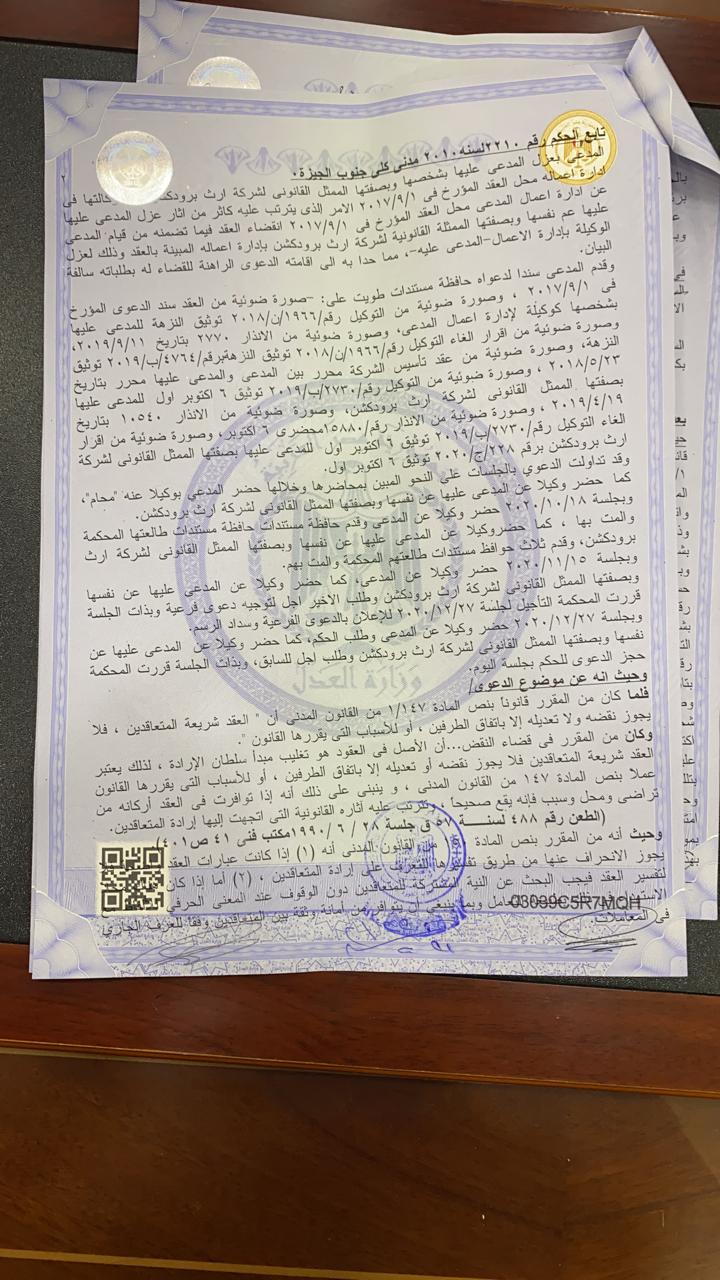 ٢
تابع الحكم رقم ٢٢١٠ لسنه ٢٠١٠ مدنى كلى جنوب الجيزة.
المدعي بعزل المدعى عليها بشخصها وبصفتها الممثل القانوني لشركة ارث برودكشن وكالتها فى
ادارة اعماله محل العقد المؤرخ فى ٢٠١٧/٩/١ الامر الذى يترتب عليه كاثر من اثار عزل المدعى عليها
عن ادارة اعمال المدعى محل العقد المؤرخ فى ٢٠١٧/٩/١ انقضاء العقد فيما تضمنه من قيام المدعى
عليها عم نفسها وبصفتها الممثلة القانونية لشركة ارث برودكشن بإدارة اعماله المبينة بالعقد وذلك لعزل
الوكيلة بإدارة الاعمال–المدعى عليه-، مما حدا به الى اقامته الدعوى الراهنة للقضاء له بطلباته سالفة
البيان.
وقدم المدعى سندا لدعواه حافظة مستندات طويت على: -صورة ضوئية من العقد سند الدعوى المؤرخ
فى ٢٠١٧/٩/١ ، وصورة ضوئية من التوكيل رقم/١٩٦٦/ن/٢٠١٨ توثيق النزهة للمدعى عليها
بشخصها كوكيلة لإدارة اعمال المدعى، وصورة ضوئية من الانذار ٢٧٧٠ بتاريخ ٢٠١٩/٩/١١,
وصورة ضوئية من اقرار الغاء التوكيل رقم/١٩٦٦/ن/٢٠١٨ توثيق النزهةبرقم/٤٧٦٤/ب/٢٠١٩ توثيق
النزهة، وصورة ضوئية من عقد تأسيس الشركة محرر بين المدعى والمدعى عليها محرر بتاريخ
٢٠١٨/٥/٢٣ ، وصورة ضوئية من التوكيل رقم/٢٧٣٠/ب/٢٠١٩ توثيق ٦ اكتوبر اول للمدعى عليها
بصفتها الممثل القانونى لشركة ارث برودكشن، وصورة ضوئية من الانذار ١٠٥٤٠ بتاريخ
٢٠١٩/٤/١٩ ، وصورة ضوئية من الانذار رقم/١٥٨٨٠محضرى ٦ اكتوبر، وصورة ضوئية من اقرار
الغاء التوكيل رقم/٢٧٣٠/ب/٢٠١٩ توثيق ٦ اكتوبر اول للمدعى عليها بصفتها الممثل القانونى لشركة
ارث برودكشن برقم ٢٢٨/ج/٢٠٢٠ توثيق ٦ اكتوبر اول.
وقد تداولت الدعوي بالجلسات علي النحو المبين بمحاضرها وخلالها حضر المدعي بوكيلا عنه "محام"،
كما حضر وكيلا عن المدعى عليها عن نفسها وبصفتها الممثل القانوني لشركة ارث برودكشن.
وبجلسة ٢٠٢٠/١٠/١٨ حضر وكيلا عن المدعى وقدم حافظة مستندات حافظة مستندات طالعتها المحكمة
والمت بها ، كما حضروكيلا عن المدعى عليها عن نفسها وبصفتها الممثل القانونى لشركة ارث
برودكشن، وقدم ثلاث حوافظ مستندات طالعتهم المحكمة والمت بهم.
وبجلسة ٢٠٢٠/١١/١٥ حضر وكيلا عن المدعى، كما حضر وكيلا عن المدعى عليها عن نفسها
وبصفتها الممثل القانونى لشركة ارث برودكشن وطلب الاخير اجل لتوجيه دعوى فرعية وبذات الجلسة
قررت المحكمة التأجيل لجلسة ٢٠٢٠/١٢/٢٧ للإعلان بالدعوى الفرعية وسداد الرسم
وبجلسة ٢٠٢٠/١٢/٢٧ حضر وكيلا عن المدعى وطلب الحكم، كما حضر وكيلا عن المدعى عليها عن
نفسها وبصفتها الممثل القانونى لشركة ارث برودكشن وطلب اجل للسابق، وبذات الجلسة قررت المحكمة
حجز الدعوى للحكم بجلسة اليوم.
وحيث انه عن موضوع الدعوى/
فلما كان من المقرر قانوناً بنص المادة ١/١٤٧ من القانون المدنى أن " العقد شريعة المتعاقدين ، فلا
يجوز نقضه ولا تعديله إلا باتفاق الطرفين ، أو للأسباب التى يقررها القانون ".
وكان من المقرر فى قضاء النقض...أن الأصل في العقود هو تغليب مبدأ سلطان الإرادة ، لذلك يعتبر
العقد شريعة المتعاقدين فلا يجوز نقضه أو تعديله إلا باتفاق الطرفين ، أو للأسباب التى يقررها القانون
عملا بنص المادة ١٤٧ من القانون المدنى ، و ينبنى على ذلك أنه إذا توافرت فى العقد أركانه من
تراضى ومحل وسبب فإنه يقع صحيحا وتترتب عليه آثاره القانونية التى اتجهت إليها إرادة المتعاقدين.
(الطعن رقم ٤٨٨ لسنـــة ٥٧ ق جلسة ٢٨ / ٦ / ١٩٩٠مكتب فنى ٤١ ص٤٠١)
وحيث أنه من المقرر بنص المادة من القانون المدنى أنه (١) إذا كانت عبارات العقد
يجوز الانحراف عنها من طريق تفسيرها للتعرف على إرادة المتعاقدين ، (٢) أما إذا كان
لتفسير العقد فيجب البحث عن النية المشتركة للمتعاقدين دون الوقوف عند المعنى الحرفي
وبما ينبغي أن يتوافر من أمانة وثقة بين المتعاقدين وفقا للعرف الجاري
فى المعاملات.
03039C5R7MQH
وزارة العدل